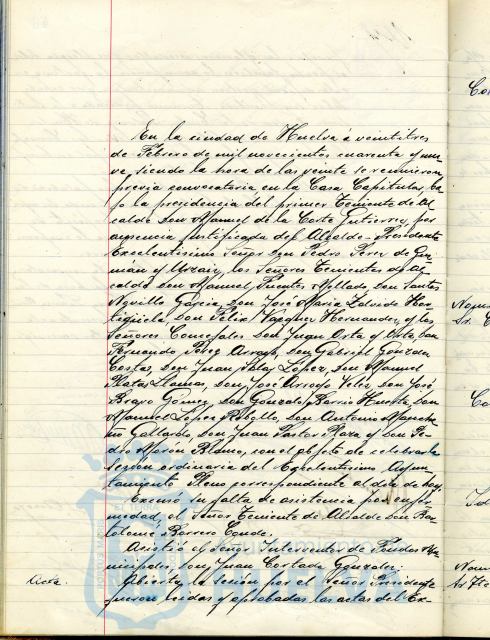 En la ciudad de Huelva á veintitres
de Febrero de mil novecientos cuarenta y nue-
ve, siendo la hora de las veinte se reunieron,
previa convocatoria, en la Casa Capitular, ba-
jo la presidencia del primer Teniente de Al-
calde Don Manuel de la Corte Gutierrez, por
ausencia justificada del Alcalde-Presidente
Excelentisimo Señor Don Pedro Perez de Guz-
man y Urzaiz, los Señores Tenientes de Al-
calde Don Manuel Fuentes Mellado, Don Santos
Novillo Garcia, Don José Maria
Don Felix Vazquez Hernandez, y los
Señores Concejales Don Juan Orta y Orta, Don
Fernando Perez Arroyo, Don Gabriel Gonzalez
Costas, Don Juan Lopez, Don Manuel
Platas Llamas, Don José Arroyo Velez, Don José
Bravo Gómez, Don Gonzalo Barrio Huerta, Don
Manuel Lopez Rebollo, Don Antonio Manche-
ño Gallardo, Don Juan Pastor Plaza y Don Pe-
dro Morón Blanco, con el objeto de celebrar la
sesión ordinaria del Excelentisimo Ayun-
tamiento Pleno correspondiente al dia de hoy.
Excusó su falta de asistencia por enfer-
medad, el Señor Teniente de Alcalde Don Bar-
tolome Borrero Conde.
Asistió el Señor Interventor de Fondos Mu-
nicipales, Don Juan Cortada Gonzalez.
Acta. Abierta la sesión por el Señor Presidente
fueron leidas y aprobadas las actas del Ex-
EL TERRA
Ayuntamiento